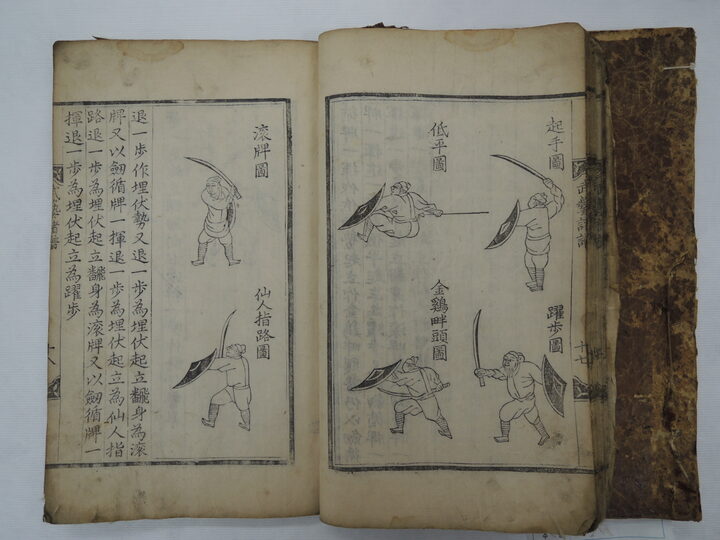 武藝諸譜
十七
起手圖
躍歩圖
低平圖
金鷄畔頭圖
滚牌圖
仙人指路圖
退一歩作埋伏勢又退一歩為埋伏起立飜身為滚
牌又以劒循牌一揮退一歩為埋伏起立為仙人指
路退一歩為埋伏起立飜身為滚牌又以劒循牌一
揮退一歩為埋伏起立為躍歩